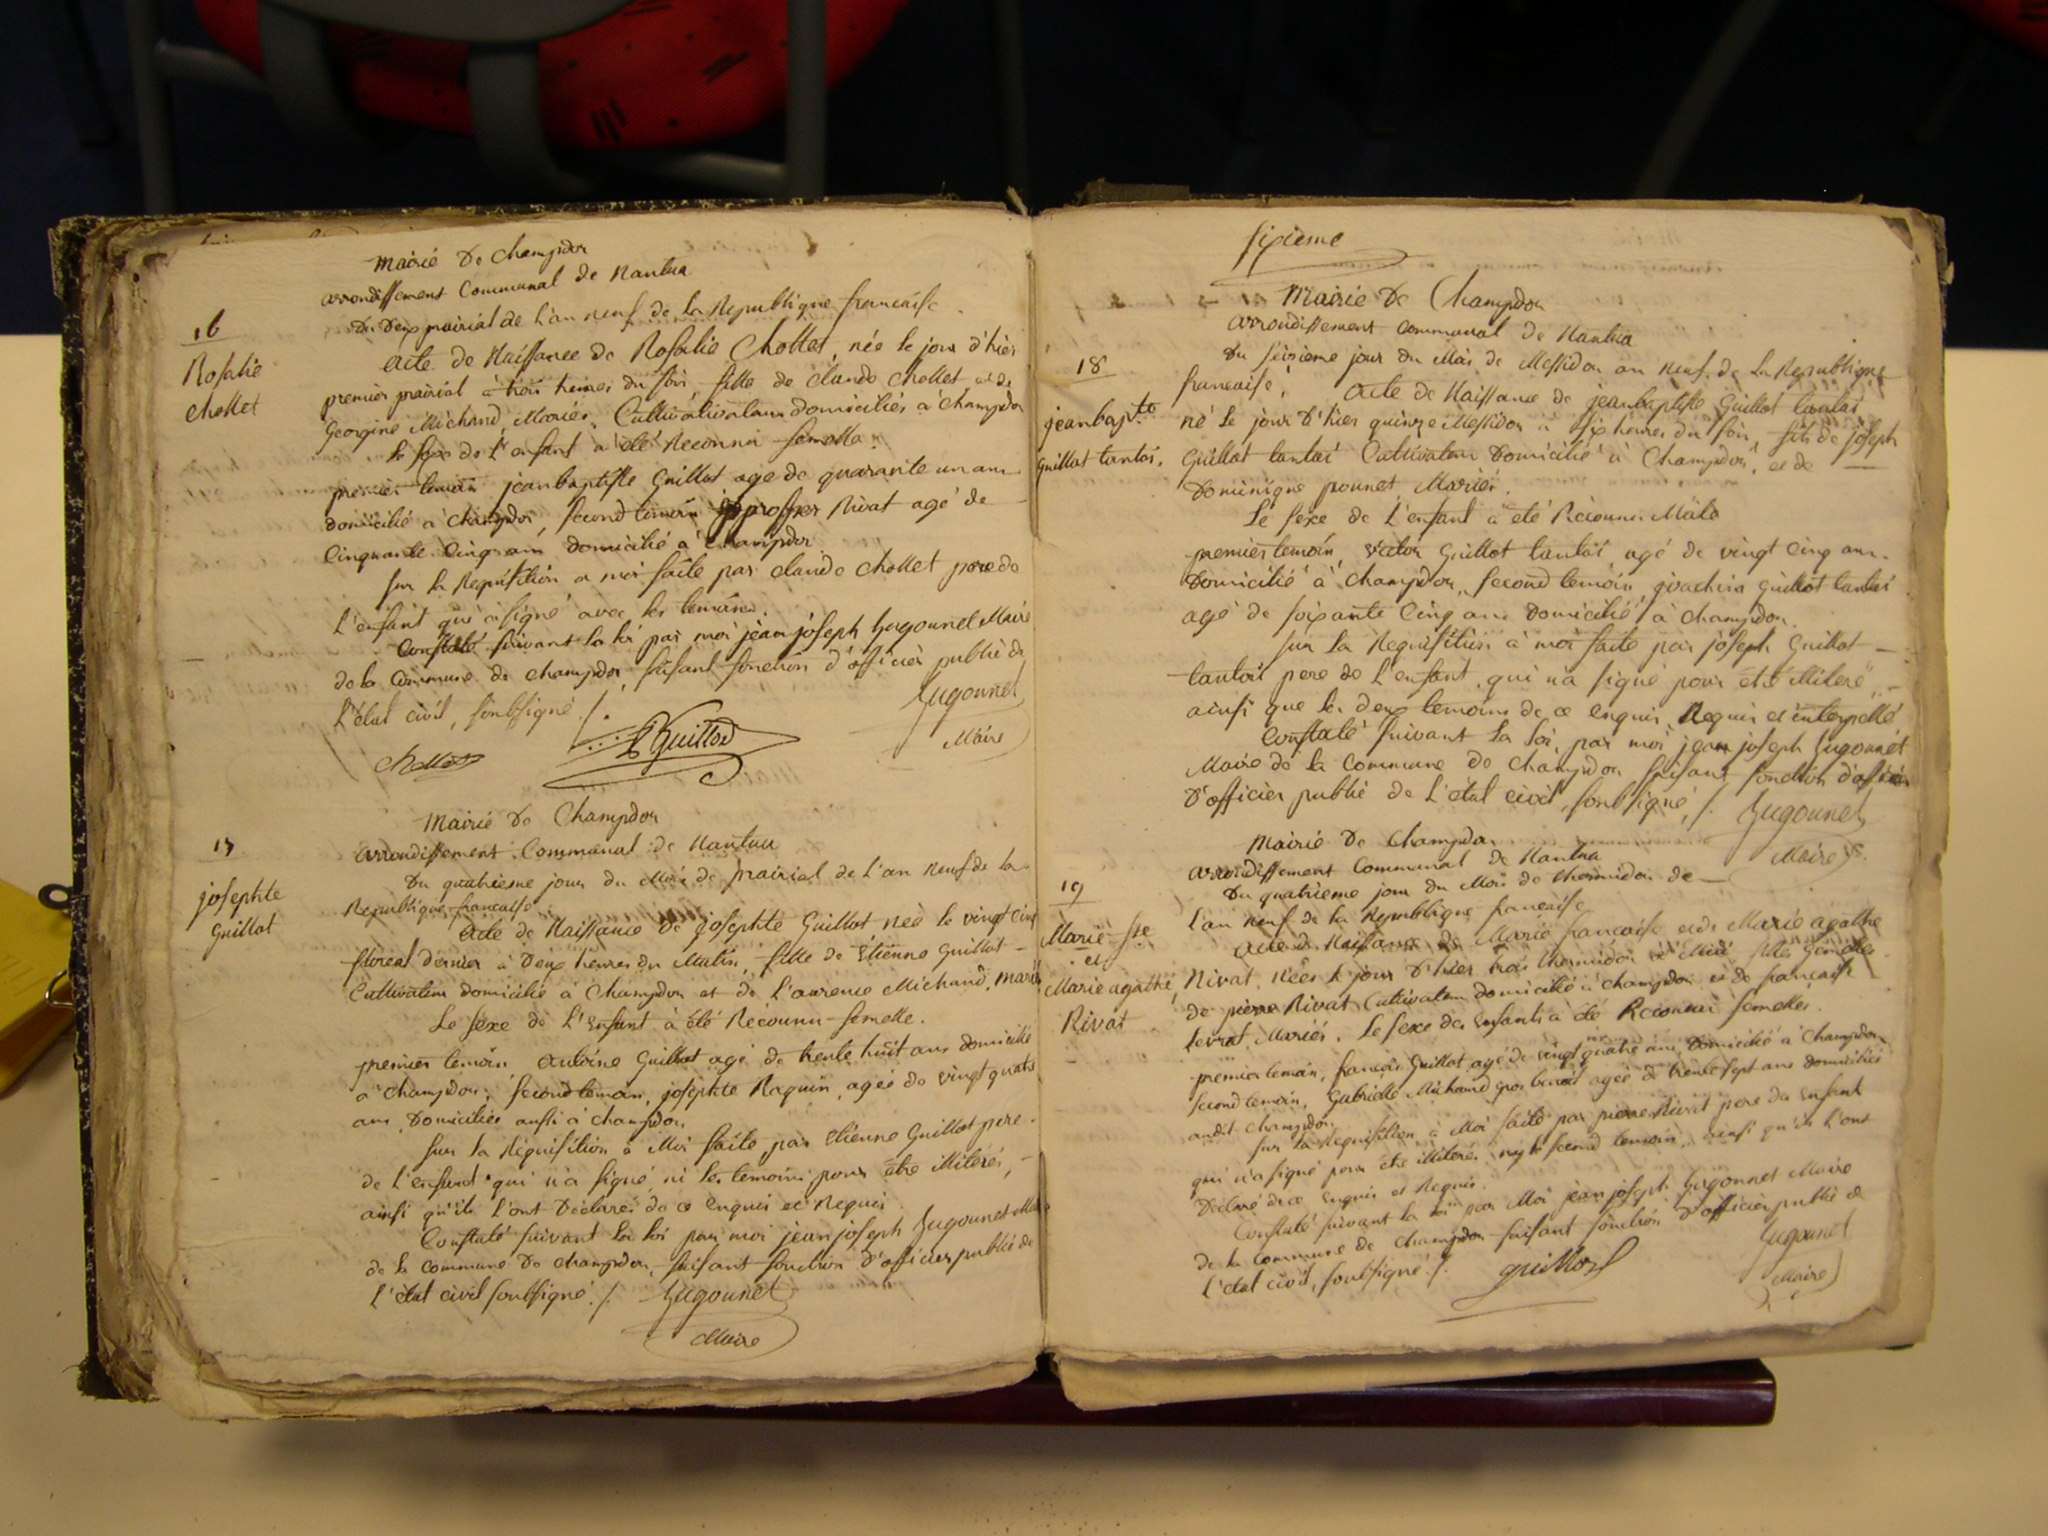 Mairie De Champdor
arrondissement Communal de Nantua
Du Deux prairial de l'an neuf de la Republique francaise
16
Rosalie
Chollet
Acte de Naissance de Rosalie Chollet, née le jour d'hier
premier prairial à trois heures du soir, fille de claude Chollet et de
Georgine Michaud, Mariés, Cultivateurs domiciliés à Champdor
Le sexe de L'enfant à été Reconnu femelle
premier temoin jeanbaptiste Guillot agé de quarante un ans
domicilié à Champdor, second temoin Rivat agé de
Cinquante Cinq ans domicilié à Champdor
Sur la Requisition a moi faite par claude Chollet pere de
L'enfant qui à signé avec les temoins.
Constaté suivant la loi par moi jean joseph Jugounet Maire
de la Commune de champdor faisant fonction d'officier public de
L'état civil, soussigné ./.
Jugounet
Maire
Chollet
Guillot
Mairie De Champdor
17
josephte
Guillot
arrondissement Communal de Nantua
Du quatrieme jour du Mois de prairial de L'an Neuf de la
Republique francaise
Acte de Naissance de josephte Guillot née le vingt cinq
floreal dernier à Deux heures du Matin, fille de Etienne Guillot
Cultivateur domicilié à Champdor et de L'aurence Michaud, Mariés
Le sexe de L'enfant à été Reconnu femelle.
premier temoin Antoine Guillot agé de trente huit ans domicilié
à champdor, second temoin, josephte Raquin, agée de vingt quatre
ans, Domiciliés aussi à champdor
Sur la Requisition à Moi faite par Etienne Guillot pere
de L'enfant qui n'à signé, ni les temoins pour être illiterés,
ainsi qu'ils l'ont Déclaré de ce Enquis et Requis
Constaté suivant la loi par moi jean joseph Jugounet Maire
de la Commune De champdor, faisant fonction D'officier public de
L'état civil soussigné ./. Jugounet
Maire
sixieme
Mairie De Champdor
arrondissement Communal de Nantua
18
jeanbapte
Guillot tantai.
Du seizieme jour du Mois de Messidor an neuf de La Republique
francaise, Acte de Naissance de jeanbaptiste Guillot tantai
né le jour d'hier quinze Messidor à six heures du soir, fils de joseph
Guillot tantai Cultivateur Domicilié à Champdor, et de
Dominique pounet Mariés.
Le sexe de L'enfant à été Reconnu Mâle
premier temoin, victor Guillot tantai agé de vingt cinq ans
Domicilié à Champdor, second temoin, joachim Guillot tantai
agé de soixante Cinq ans domicilié à champdor.
Sur la Requisition à moi faite par joseph Guillot
tantai pere de L'enfant, qui n'à signé pour être illiteré,
ainsi que les deux temoins de ce enquis, Requis et interpellé
Constaté suivant la loi, par moi jean joseph Jugounet
Maire de la Commune de champdor faisant fonction d'officier
D'officier public de L'état civil, soussigné, ./. Jugounet
Maire
Mairie De Champdor
arrondissement Communal de Nantua
19
Marie fse
et
Marie agathe
Rivat
Du quatrieme jour du Mois de thermidor de
L'an neuf de la Republique francaise
Acte de Naissance de Marie francaise et de Marie agathe
Rivat, nées le jour D'hier trois thermidor à Midi filles Gemelles
de pierre Rivat Cultivateur domicilié à champdor et de francaise
levrat Mariés. Le sexe des Enfants à été Reconnu femelles.
premier temoin, francois Guillot agé de vingt quatre ans Domicilié à Champdor
second temoin, Gabrielle Michaud agée de trente sept ans domiciliés
audit champdor
Sur la Requisition à Moi faite par pierre Rivat pere des Enfant
qui n'a signé pour être illiteré ny le second temoin, ainsi qu'ils l'ont
Déclaré de ce Enquis et Requis
Constaté suivant la loi par Moi jean joseph Jugounet Maire
de la Commune de champdor faisant fonction D'officier public de
L'état civil, soussigné ./. guillot
Jugounet
Maire